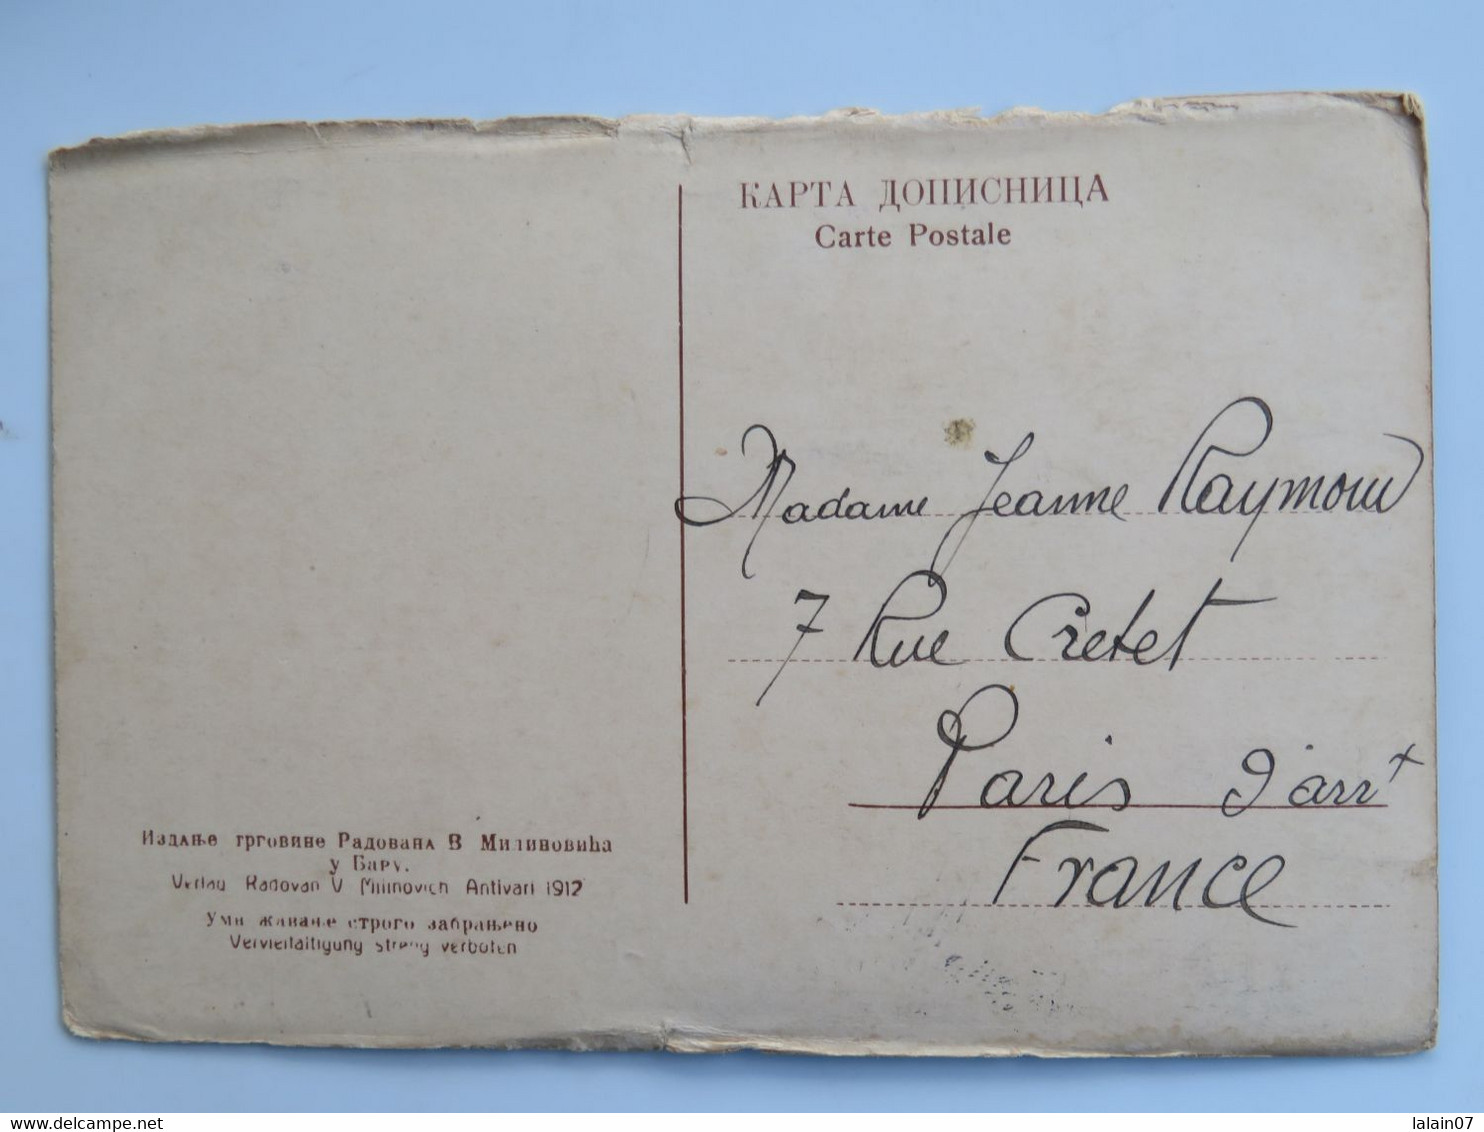 КАРТА ДОПИСНИЦА
Carte Postale
Madame Jeanne Raymond
7 Rue Cretet
Paris 9 arrt
France
Издање трговине Радована В Милиновића
у Бару.
Verlag Radovan V Milinovich Antivari 1912
Умножавање строго забрањено
Vervielfältigung streng verboten
delcampe.net
lalain07